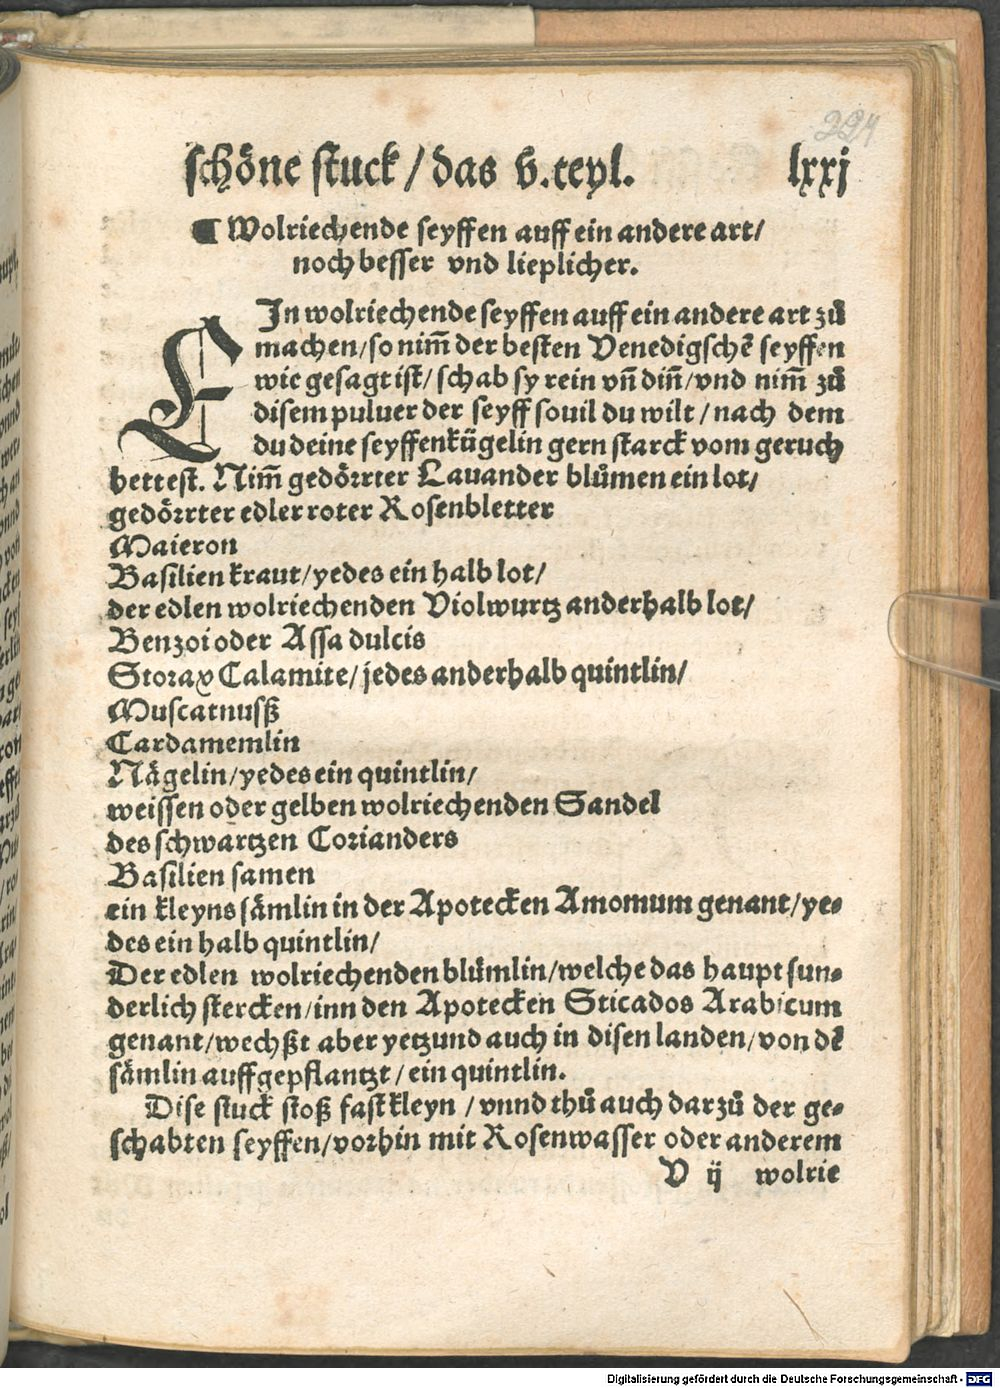 224
schöne stuck / das v. teyl. lxxj
¶ Wolriechende seyffen auff ein andere art/
noch besser vnd lieplicher.
EIn wolriechende seyffen auff ein andere art zů
machen/so nim̄ der besten Venedigschē seyffen
wie gesagt ist/ schab sy rein vn̄ din̄/vnd nim̄ zů
disem puluer der seyff souil du wilt / nach dem
du deine seyffenkügelin gern starck vom geruch
hettest. Nim̄ gedörrter Lauander blůmen ein lot/
gedörrter edler roter Rosenbletter
Maieron
Basilien kraut/yedes ein halb lot/
der edlen wolriechenden Violwurtz anderhalb lot/
Benzoi oder Assa dulcis
Storax Calamite/jedes anderhalb quintlin/
Muscatnusß
Cardamemlin
Nägelin/yedes ein quintlin/
weissen oder gelben wolriechenden Sandel
des schwartzen Corianders
Basilien samen
ein kleyns sämlin in der Apotecken Amomum genant/ye-
des ein halb quintlin/
Der edlen wolriechenden blümlin/welche das haupt sun-
derlich stercken/inn den Apotecken Sticados Arabicum
genant/wechßt aber yetzund auch in disen landen/von dē
sämlin auffgepflantzt / ein quintlin.
Dise stuck stoß fast kleyn / vnnd thů auch darzů der ge-
schabten seyffen/vorhin mit Rosenwasser oder anderem
V ij wolrie
Digitalisierung gefördert durch die Deutsche Forschungsgemeinschaft - DFG